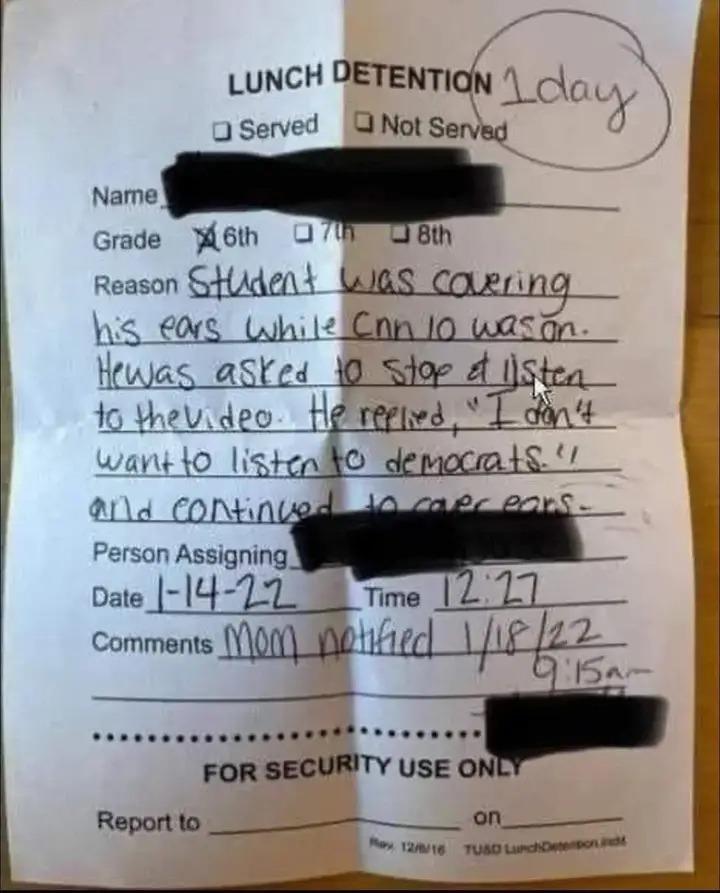 LUNCH DETENTION 1 day
☐ Served ☐ Not Served
Name
Grade ☒ 6th ☐ 7th ☐ 8th
Reason Student was covering
his ears while Cnn 10 was on.
He was asked to stop & listen
to the video. He replied, "I don't
want to listen to democrats."
and continued to cover ears.
Person Assigning
Date 1-14-22 Time 12:27
Comments Mom notified 1/18/22
9:15am
FOR SECURITY USE ONLY
Report to on
Rev. 12/6/16 TUSD LunchDetention.indd